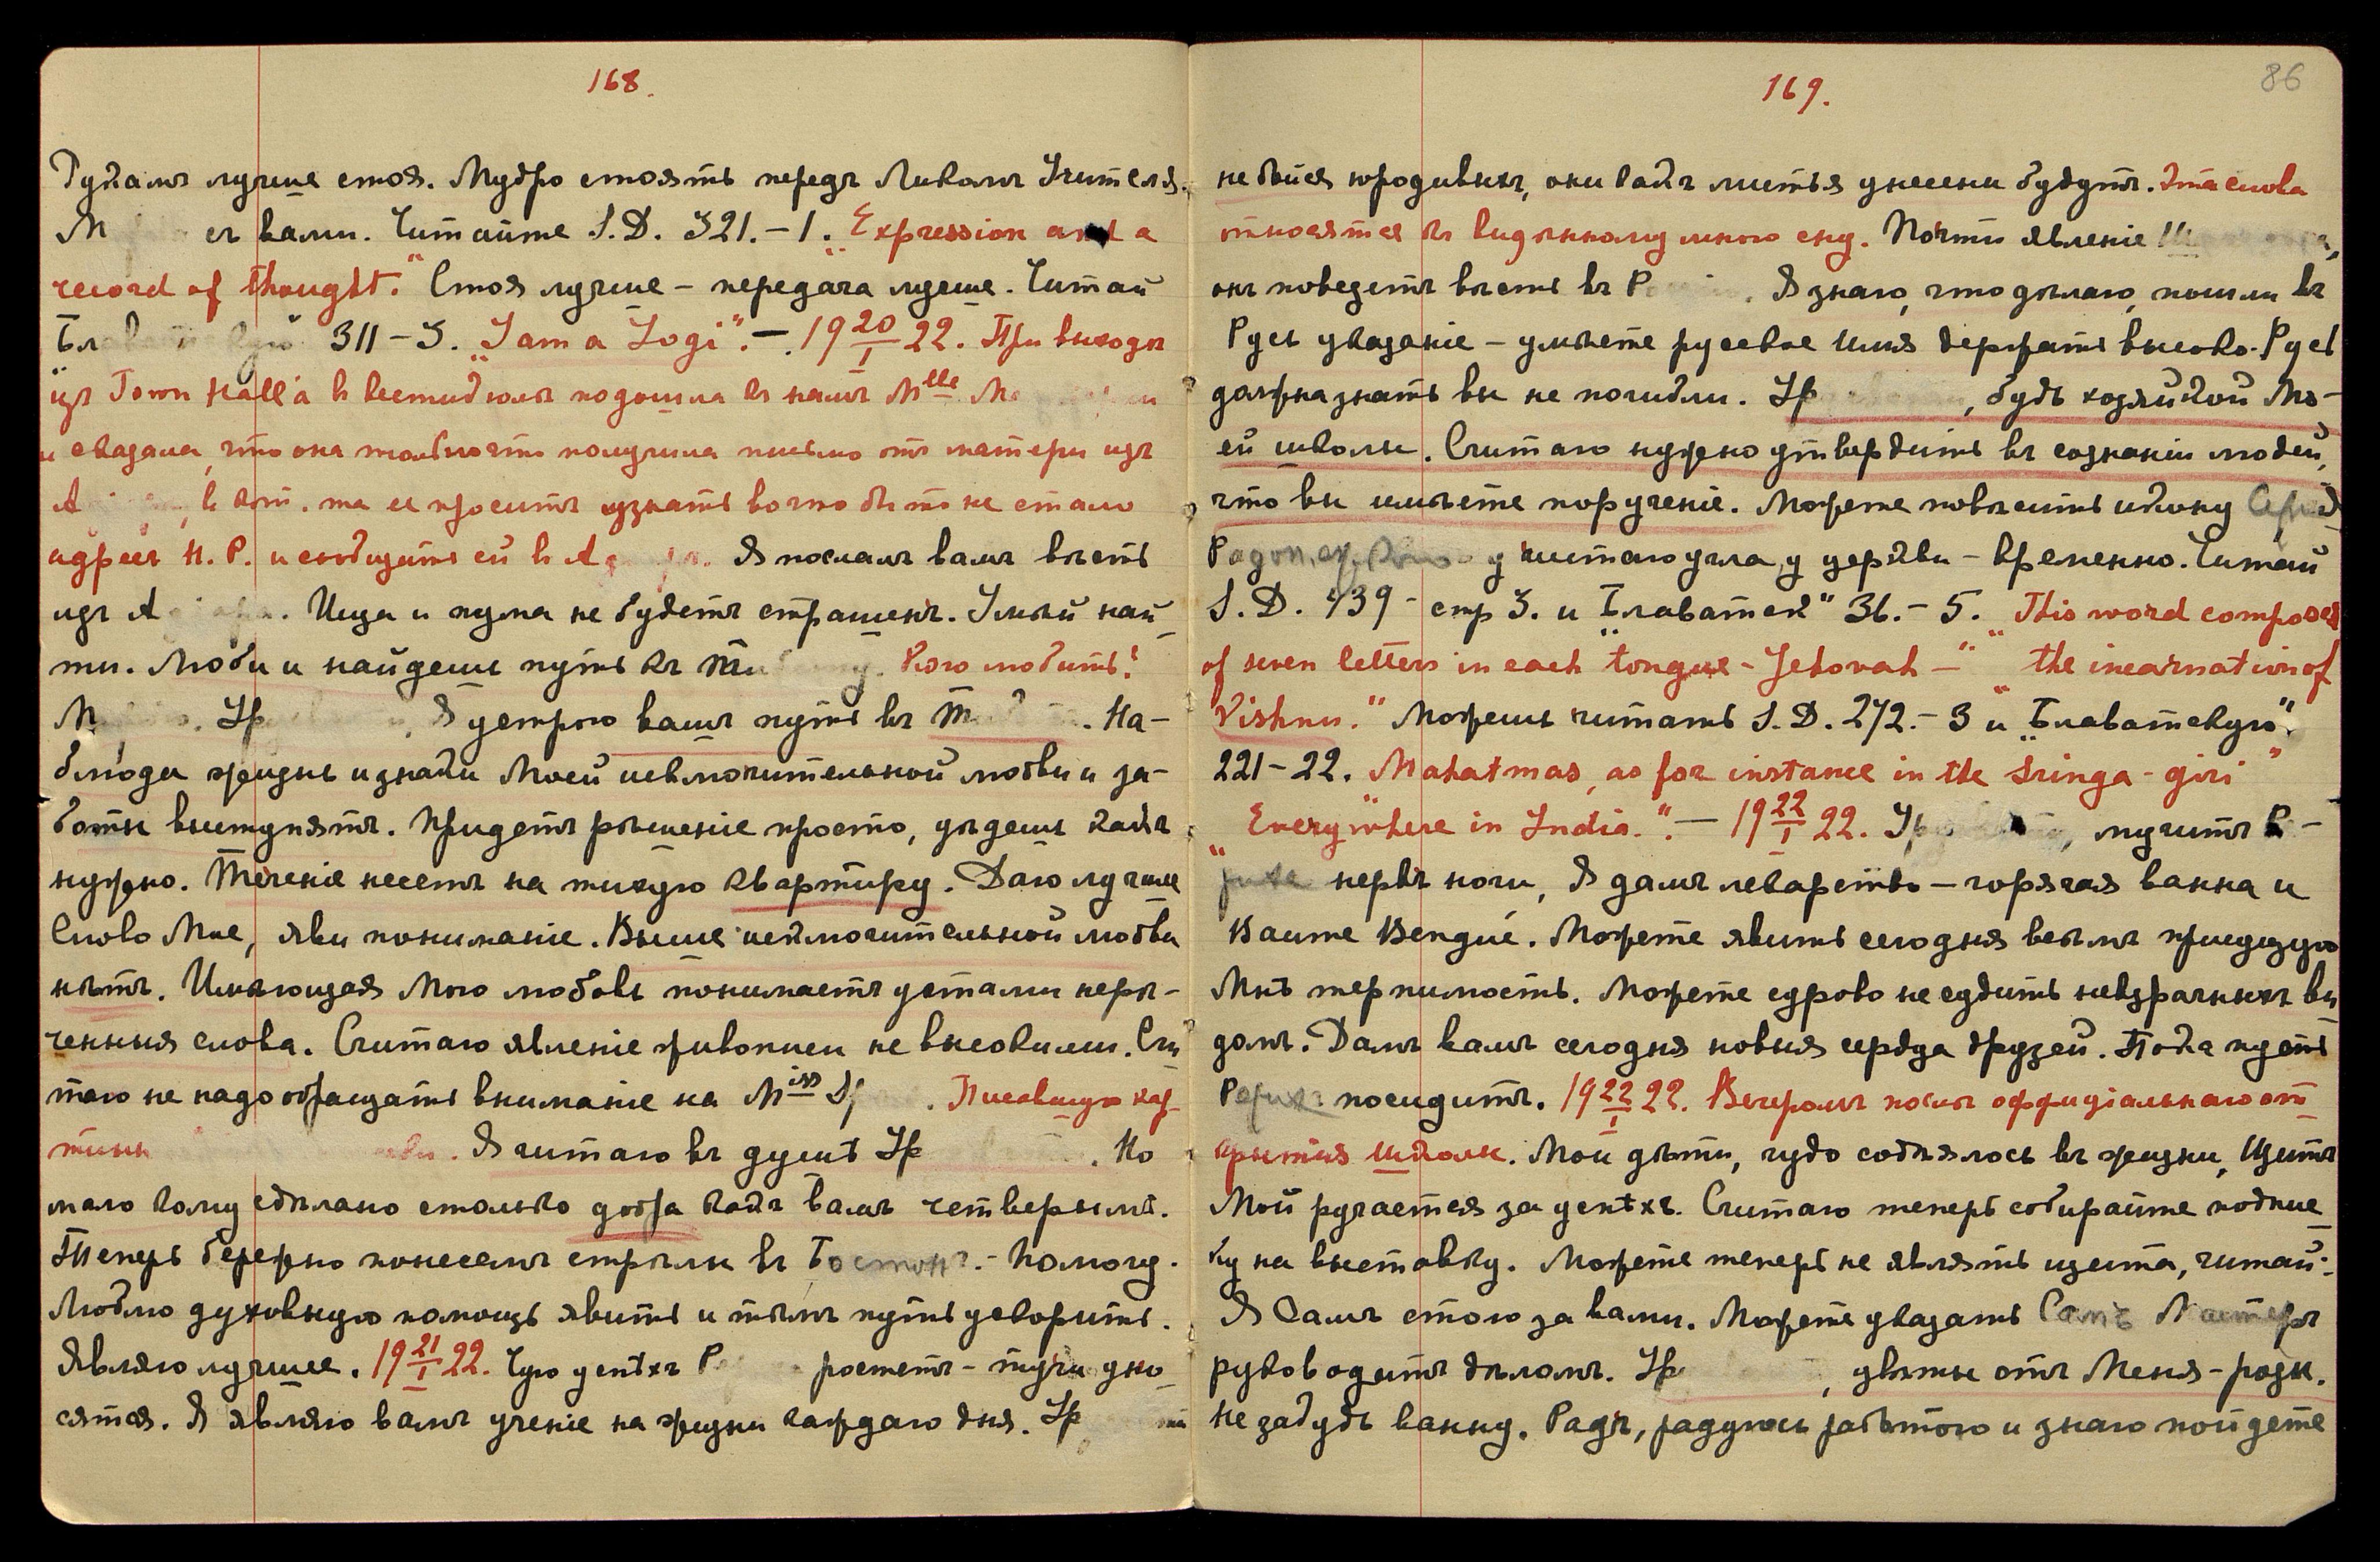 168.
Рукамъ лучше стоя. Мудро стоять передъ Ликомъ Учителя.
М съ вами. Читайте S.D. 321.-1. "Expression and a
record of thought." Стоя лучше - передача лучше. Читай
311-3. "I am a Yogi". - 19 20/I 22. При выходѣ
изъ Town Hall'а въ вестибюлѣ подошла къ намъ Mlle
и сказала, что она только что получила письмо отъ матери изъ
А , въ кот. та ее проситъ узнать во что бы то не стало
адресъ Н. Р. и сообщить ей въ А Я послалъ вамъ вѣсть
изъ А . Ища и пума не будетъ страшенъ. Умѣй най-
ти. Люби и найдешь путь къ Кого любить?
М . Ур Я устрою вамъ путь въ Т . На-
блюди жизнь и знаки Моей исключительной любви и за-
боты выступятъ. Придетъ рѣшеніе просто, уѣдешь какъ
нужно. Теченіе несетъ на тихую квартиру. Даю лучшее
Слово Мое, яви пониманіе. Выше исключительной любви
нѣтъ. Имѣющая Мою любовь понимаетъ устами нере-
ченныя слова. Считаю явленіе живописи не высокимъ. Счи
таю не надо обращать вниманіе на Miss . Писавшую кар-
тины . Я читаю въ душѣ Ур . Но
мало кому сдѣлано столько добра какъ вамъ четверымъ.
Теперь бережно понесемъ стрѣлы въ Бостонъ. - Помогу.
Люблю духовную помощь явить и тѣмъ путь ускорить.
Являю лучшее. 19 21/I 22. Чую успѣхъ Р ростетъ - тучи уно-
сятся. Я являю вамъ ученіе на жизни каждаго дня. Ур
169.
86
не бойся юродивыхъ, они какъ листья унесены будутъ. Эта слова
относятся къ видѣнному мною сну. Почти явленіе
онъ поведетъ вѣсть въ Р . Я знаю, что дѣлаю, пошли въ
Русь указаніе - умѣете русское имя держать высоко. Русь
должна знать вы не погибли. Ур , будь хозяйкой Мо-
ей школы. Считаю нужно утвердить въ сознаніи людей,
что вы имѣете порученіе. Можете повѣсить икону
у чистаго угла, у церкви - временно. Читай
S.D. 439 - стр 3. и "Блаватск" 36.-5. "This word composed
of seven letters in each tongue - Jehovah -" "the incarnation of
Vishnu." Можешь читать S.D. 272.-3 и "Блаватскую".
221-22. Mahatmas, as for instance in the Sringa-giri"
"Everywhere in India.". - 19 22/I 22. Ур , лучитъ Р-
нервъ ноги, Я далъ лекарство - горячая ванна и
Baume Bengué. Можете явить сегодня всѣмъ
Мнѣ терпимость. Можете здраво не судить невзрачныхъ ви
домъ. Далъ вамъ сегодня новыя сердца друзей. Пока пусть
Рерихъ посидитъ. 19 22/I 22. Вечеромъ послѣ оффиціальнаго от-
крытія школы. Мои дѣти, чудо собѣялось въ жизни, Щитъ
Мой ручается за успѣхъ. Считаю теперь собирайте подпис
ку на выставку. Можете теперь не являть щита, читай:
Я Самъ стою за вами. Можете указать Самъ
руководитъ дѣломъ. Ур , цвѣты отъ Меня - розы.
Не забудь ванну. Радъ, радуюсь работою и знаю пойдете